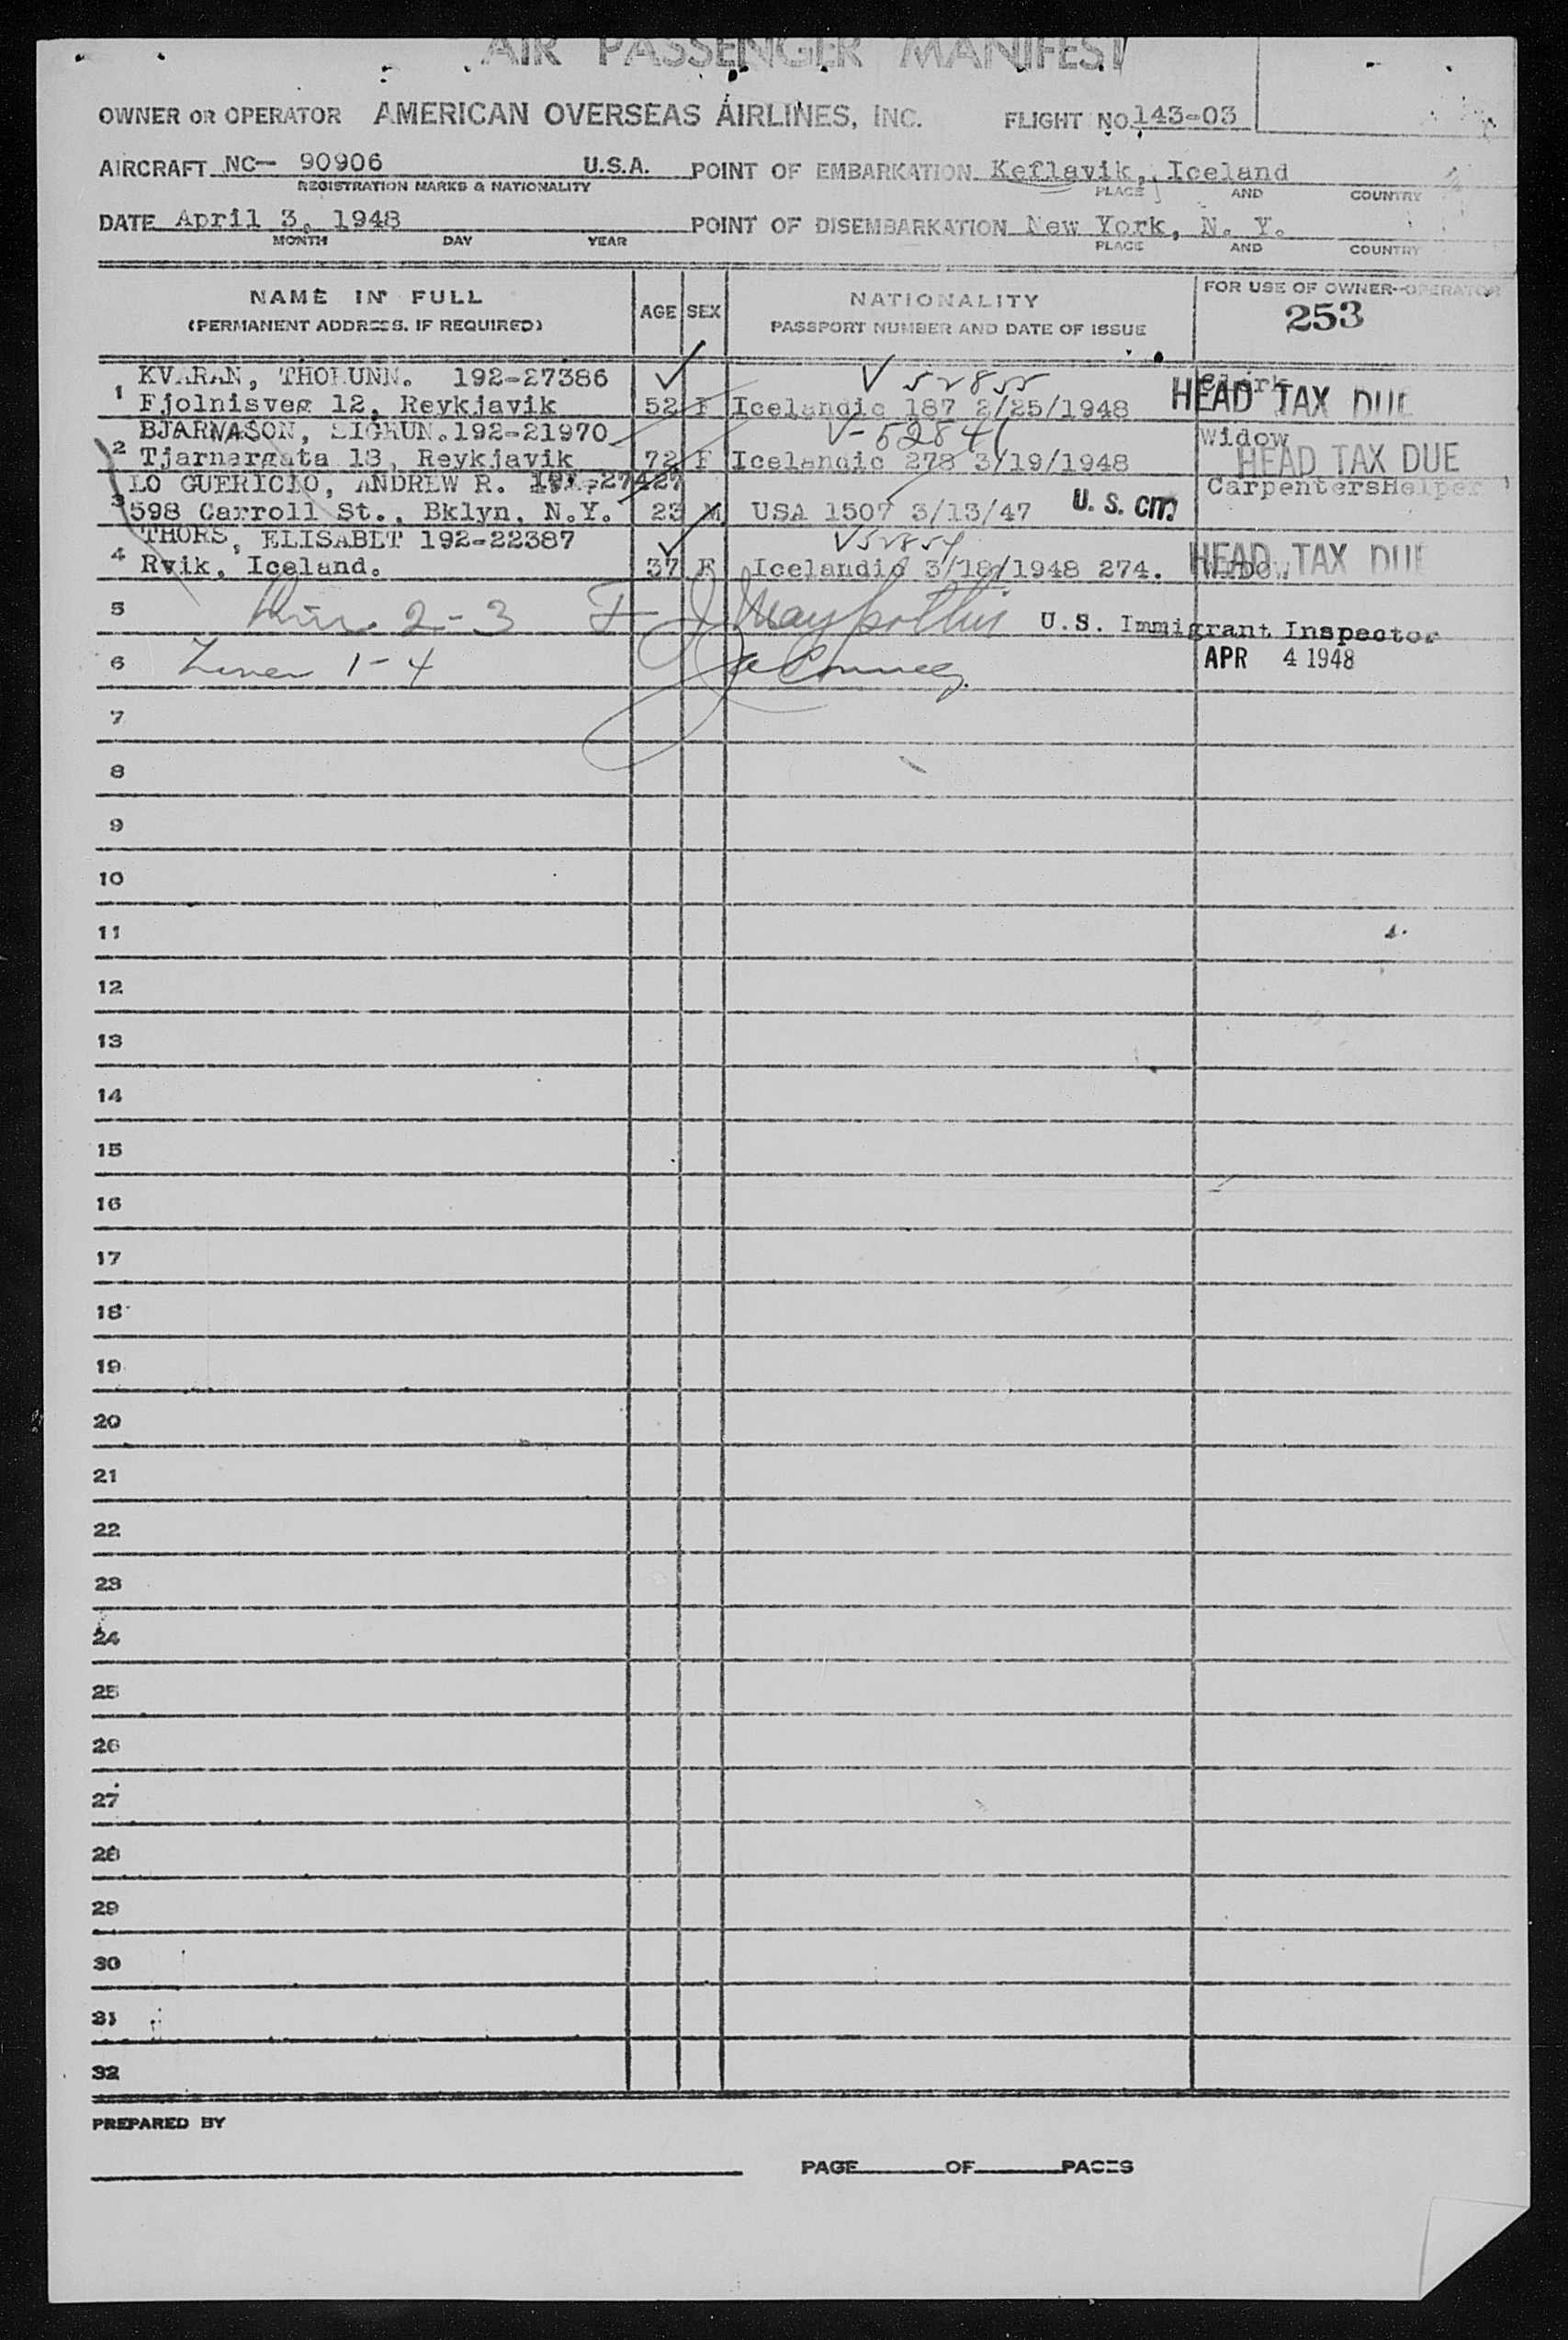 AIR PASSENGER MANIFEST
OWNER OR OPERATOR AMERICAN OVERSEAS AIRLINES, INC. FLIGHT NO. 143-03
AIRCRAFT NC- 90906 U.S.A. POINT OF EMBARKATION Keflavik, Iceland
REGISTRATION MARKS & NATIONALITY PLACE AND COUNTRY
DATE April 3, 1948 POINT OF DISEMBARKATION New York, N. Y.
MONTH DAY YEAR PLACE AND COUNTRY
NAME IN FULL AGE SEX NATIONALITY FOR USE OF OWNER-OPERATOR
(PERMANENT ADDRESS, IF REQUIRED) PASSPORT NUMBER AND DATE OF ISSUE 253
KVARAN, THORUNN. 192-27386 V 52855 Clerk
1 Fjolnisveg 12, Reykjavik 52 F Icelandic 187 2/25/1948 HEAD TAX DUE
BJARNASON, SIGRUN. 192-21970 V-52841 Widow
2 Tjarnargata 18, Reykjavik 72 F Icelandic 278 3/19/1948 HEAD TAX DUE
LO GUERICIO, ANDREW R. 27427 CarpentersHelper
3 598 Carroll St., Bklyn, N.Y. 23 M USA 1507 3/13/47 U. S. CIT.
THORS, ELISABET 192-22387 V52854
4 Rvik, Iceland. 37 F Icelandic 3/18/1948 274. WIDOW HEAD TAX DUE
5 2-3 U.S. Immigrant Inspector
6 1-4 APR 4 1948
7
8
9
10
11
12
13
14
15
16
17
18
19
20
21
22
23
24
25
26
27
28
29
30
31
32
PREPARED BY
PAGE OF PAGES